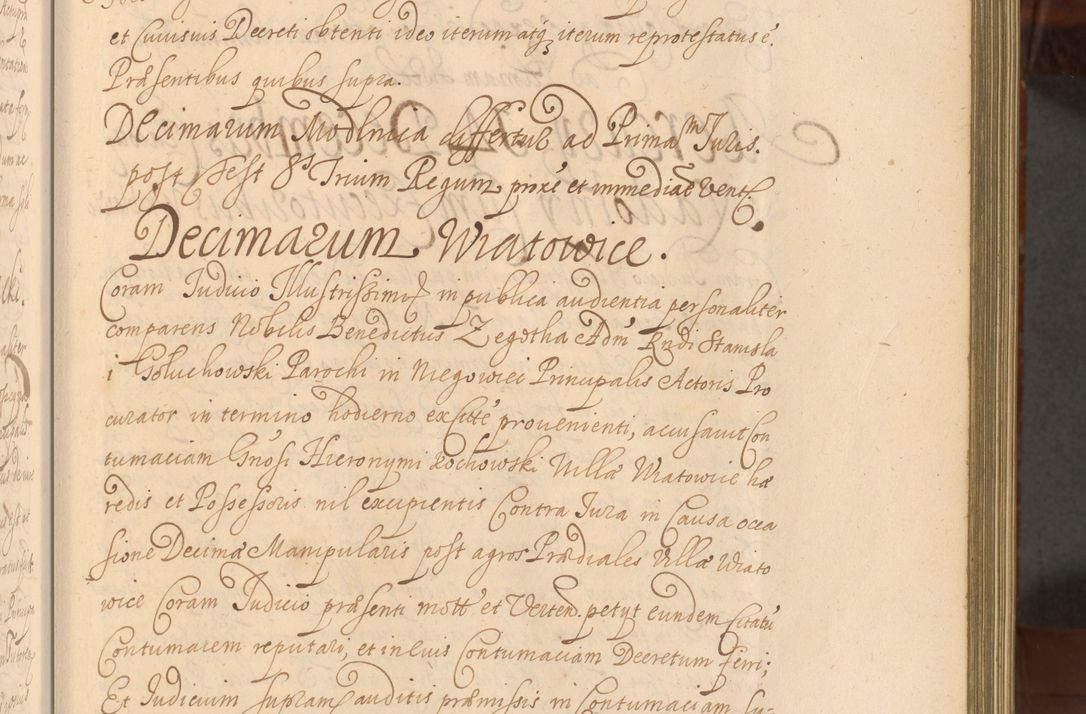 et Cuiusuis Decreti obtenti ideo iterum atq3 iterum reprotestatus ē.
Præsentibus quibus supra.
Decimarum Modlnica differtur ad Primaᵐ Iuris.
post Fest SS Trium Regum proxē et immediatē vent
Decimarum Wiatowice.
Coram Iudicio Illustrissimi in publica audientia personaliter
comparens Nobilis Benedictus Zegotha Adm̄ Rndi Stanisla
i Goluchowski Parochi in Niegowici Principalis Actoris Pro
curator in termino hodierno ex cittē prouenienti, accusauit Con
tumaciam Gn̄osi Hieronymi Kochowski Villæ Wiatowice hæ
redis et Possessoris nil excipientis Contra Iura in Causa occa
sione Decimæ Manipularis post agros Prædiales Villæ Wiato
wice Coram Iudicio præsenti mott̄ et Verten. petyt eundem citatū
Contumacem reputari, et in eius Contumaciam Decretum ferri;
Et Iudicium supram̄ auditis præmissis in Contumaciam su-